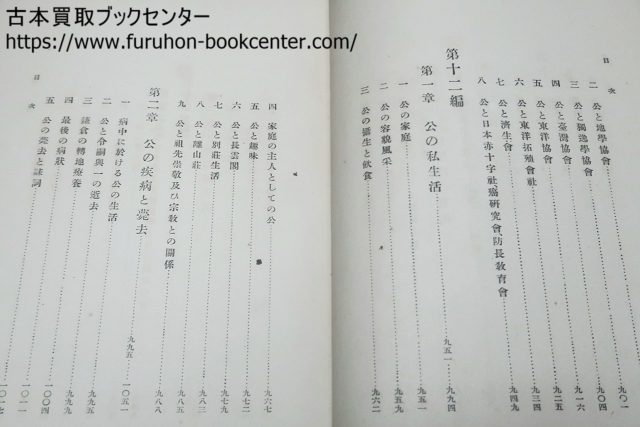 古本買取ブックセンター
https://www.furuhon-bookcenter.com/
目次
二 公と地學協會 九〇一
三 公と獨逸學協會
四 公と臺灣協會 九一六
五 公と東洋協會 九二五
六 公と東洋拓殖會社 九三四
七 公と濟生會
八 公と日本赤十字社癌研究會、防長敎育會 九四九
第十二編
第一章 公の私生活 九五一 九九四
一 公の家庭 九五一
二 公の容貌風采
三 公の攝生と飮食 九六二
四 家庭の主人としての公 九六七
五 公と趣味
六 公と長雲閣 九七二
七 公と別莊生活 九七九
八 公と離山莊 九八三
九 公と祖先崇敬及び宗敎との關係 九八八
第二章 公の疾病と薨去 九九五 一〇五一
一 病中に於ける公の生活
二 公と令嗣與一の逝去
三 鎌倉の轉地療養 九九五
四 最後の病狀 九九九
五 公の薨去と誄詞 一〇〇四
一〇一一
一〇一七
目次